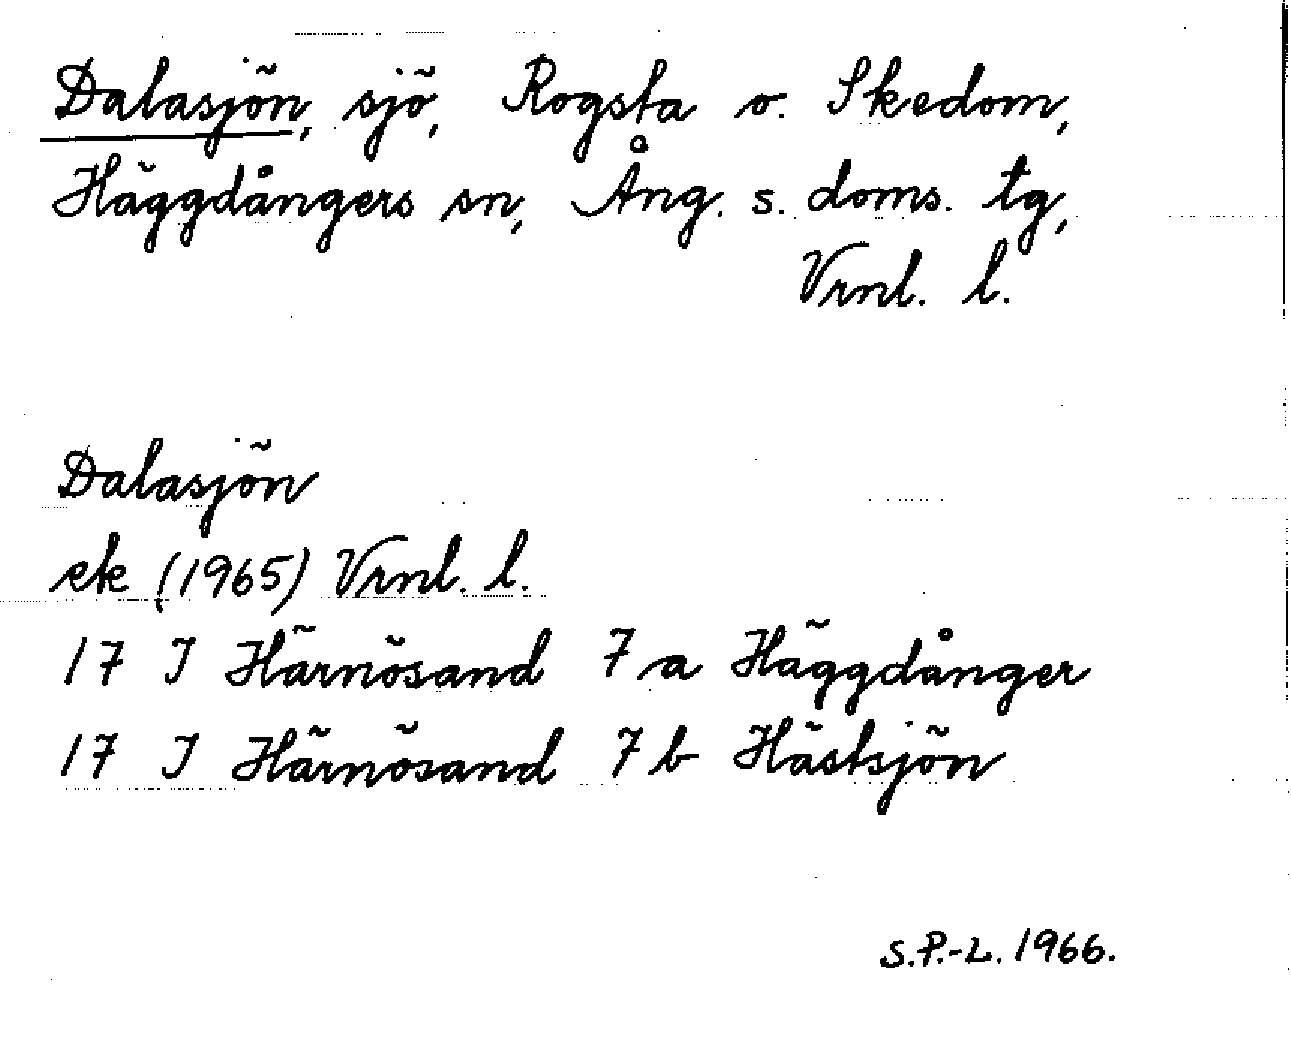 Dalasjön, sjö, Rogsta o. Skedom,
Häggdångers sn, Ång. s. doms. tg,
Vrnl. l.
Dalasjön
ek (1965) Vrnl. l.
17 I Härnösand 7a Häggdånger
17 I Härnösand 7b Hästsjön
S.P.-L. 1966.